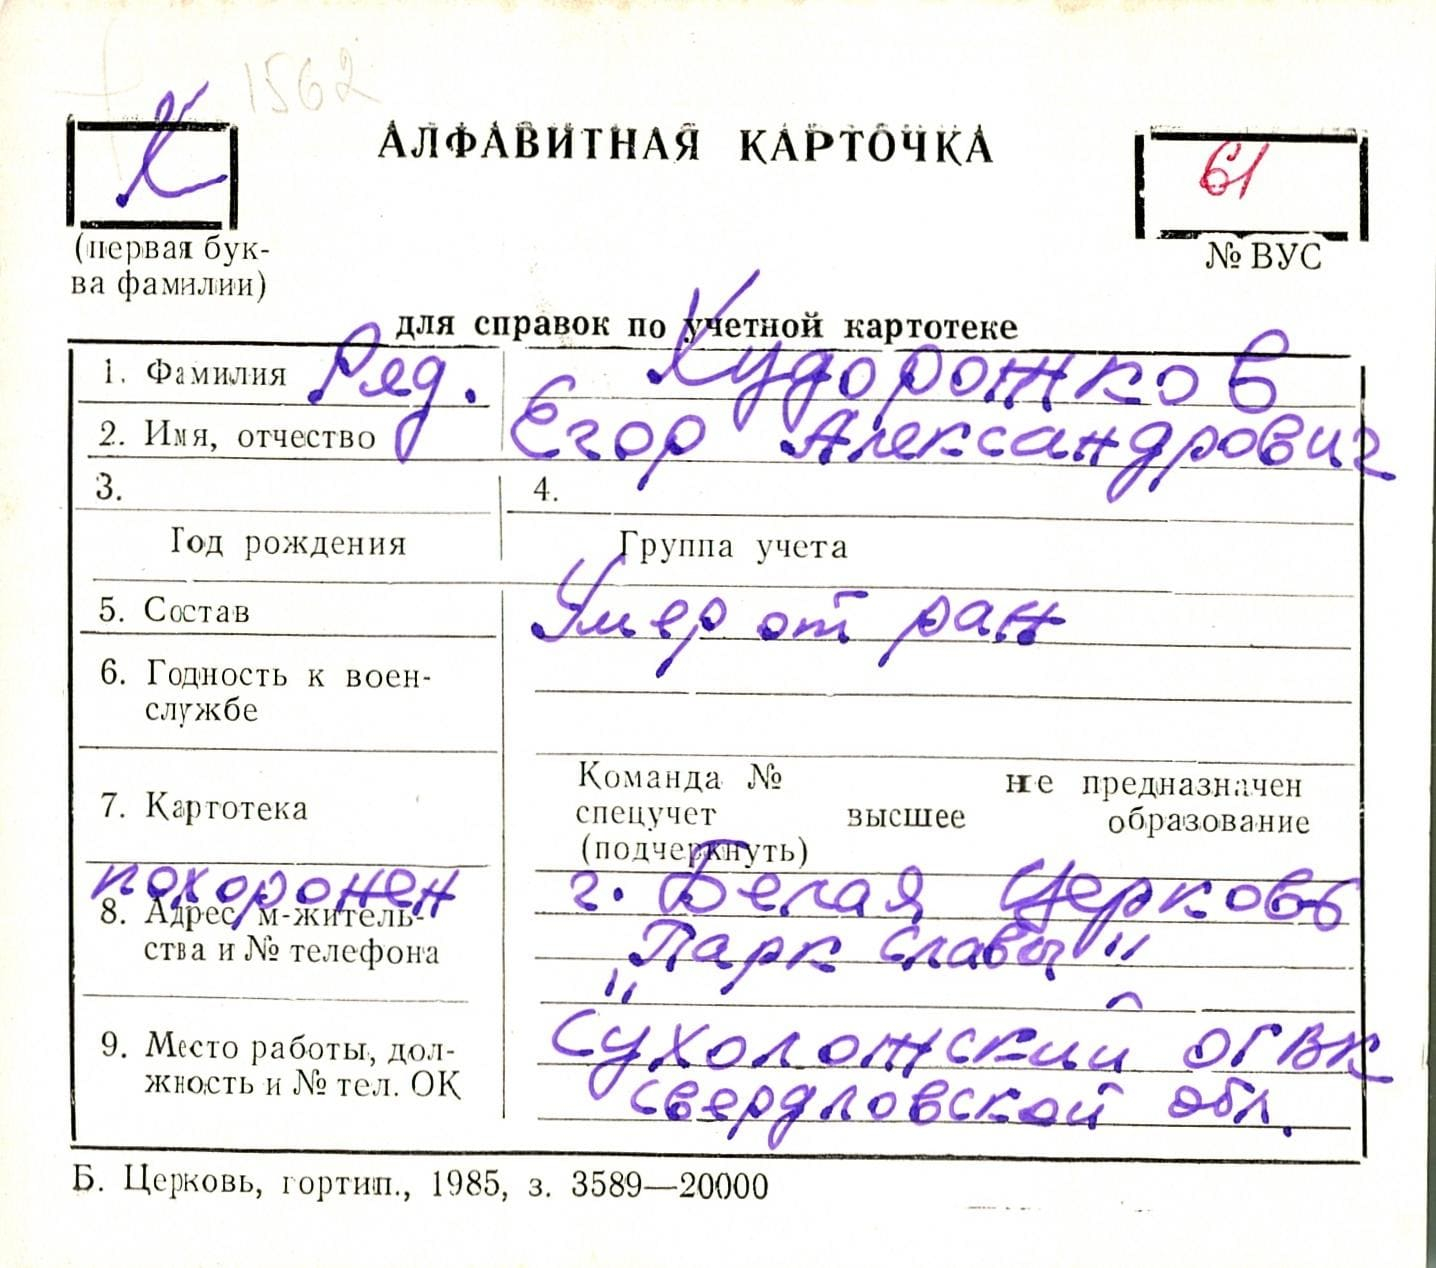 1562
Х
АЛФАВИТНАЯ КАРТОЧКА
61
(первая бук-
ва фамилии)
№ ВУС
для справок по учетной картотеке
1. Фамилия Ряд. Худорожков
2. Имя, отчество Егор Александрович
3. 4.
Год рождения Группа учета
5. Состав Умер от ран
6. Годность к воен-
службе
7. Картотека
Команда № не предназначен
спецучет высшее образование
(подчеркнуть)
похоронен г. Белая Церковь
8. Адрес м-житель-
ства и № телефона
"Парк Славы"
9. Место работы, дол-
жность и № тел. ОК
Сухоложский ОГВК
Свердловской обл.
Б. Церковь, гортип., 1985, з. 3589—20000